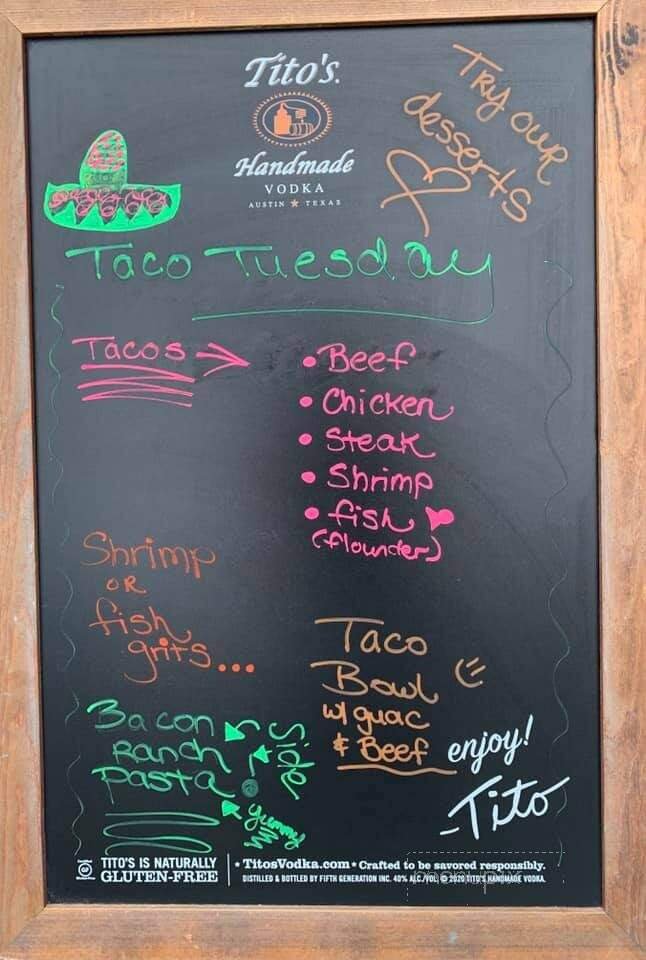 Tito's.
Handmade
VODKA
AUSTIN ★ TEXAS
Try our
desserts
Taco Tuesday
Tacos →
• Beef
• Chicken
• Steak
• Shrimp
• fish
(flounder)
Shrimp
OR
fish
grits...
Taco
Bowl
w/ guac
& Beef
Bacon
Ranch
pasta
Side
yummy
enjoy!
-Tito
Certified
GF
TITO'S IS NATURALLY
GLUTEN-FREE
• TitosVodka.com • Crafted to be savored responsibly.
DISTILLED & BOTTLED BY FIFTH GENERATION INC. 40% ALC./VOL. © 2020 TITO'S HANDMADE VODKA.
menupix